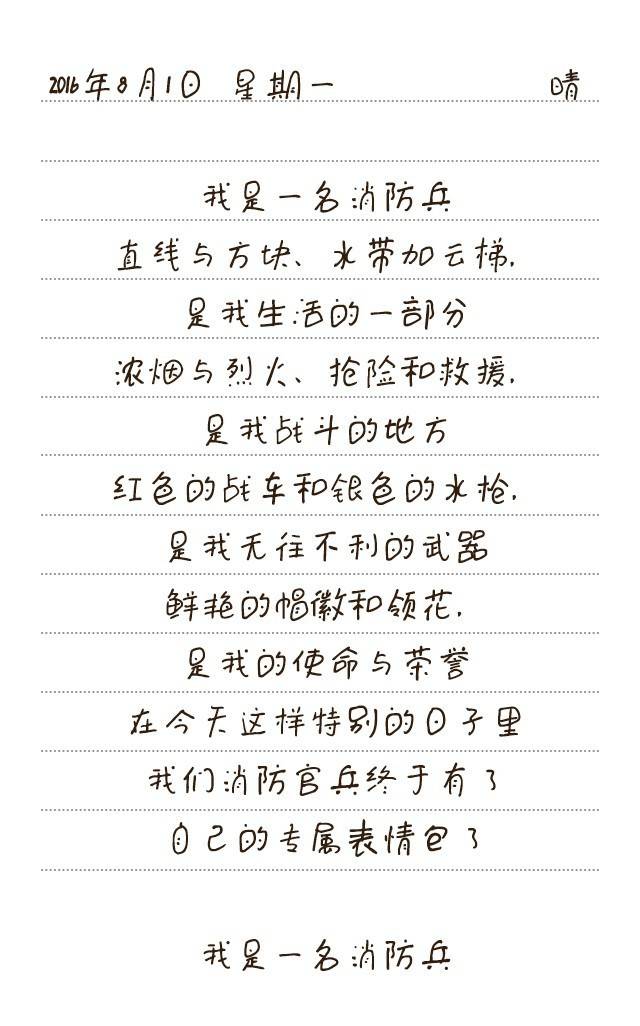 2016年8月1日 星期一 晴
我是一名消防兵
直线与方块、水带加云梯.
是我生活的一部分
浓烟与烈火、抢险和救援.
是我战斗的地方
红色的战车和银色的水枪.
是我无往不利的武器
鲜艳的帽徽和领花.
是我的使命与荣誉
在今天这样特别的日子里
我们消防官兵终于有了
自己的专属表情包了
我是一名消防兵